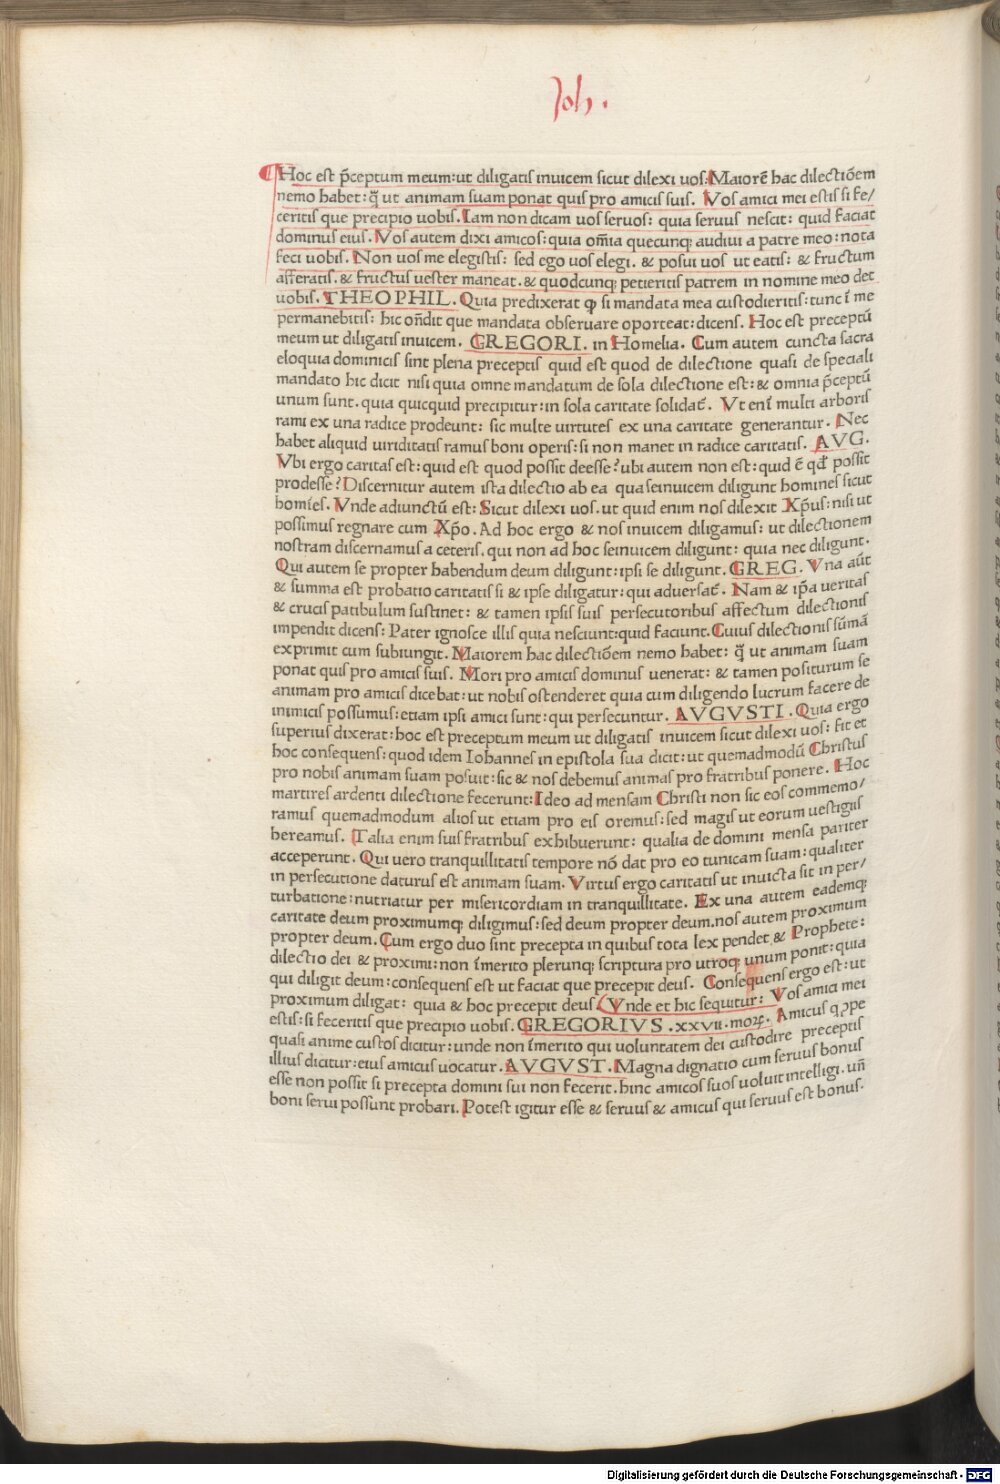 Joh.
¶Hoc est p̄ceptum meum: ut diligatis inuicem sicut dilexi uos. Maiorē hac dilectiōem
nemo habet: q̄ ut animam suam ponat quis pro amicis suis. Vos amici mei estis si fe/
ceritis que precipio uobis. Iam non dicam uos seruos: quia seruus nescit: quid faciat
dominus eius. Vos autem dixi amicos: quia om̄ia quecunq; audiui a patre meo: nota
feci uobis. Non uos me elegistis: sed ego uos elegi. & posui uos ut eatis: & fructum
afferatis. & fructus uester maneat. & quodcunq; petieritis patrem in nomine meo det
uobis. THEOPHIL. Quia predixerat ꝙ si mandata mea custodieritis: tunc ī me
permanebitis: hic on̄dit que mandata obseruare oporteat: dicens. Hoc est preceptū
meum ut diligatis inuicem. GREGORI. in Homelia. Cum autem cuncta sacra
eloquia dominicis sint plena preceptis quid est quod de dilectione quasi de speciali
mandato hic dicit nisi quia omne mandatum de sola dilectione est: & omnia p̄ceptū
unum sunt. quia quicquid precipitur: in sola caritate solidat̄. Vt enī multi arboris
rami ex una radice prodeunt: sic multe uirtutes ex una caritate generantur. Nec
habet aliquid uiriditatis ramus boni operis: si non manet in radice caritatis. AVG.
Vbi ergo caritas est: quid est quod possit deesse? ubi autem non est: quid ē qđ possit
prodesse? Discernitur autem ista dilectio ab ea qua seinuicem diligunt homines sicut
homīes. Vnde adiunctū est: Sicut dilexi uos. ut quid enim nos dilexit Xp̄us: nisi ut
possimus regnare cum Xp̄o. Ad hoc ergo & nos inuicem diligamus: ut dilectionem
nostram discernamus a ceteris. qui non ad hoc seinuicem diligunt: quia nec diligunt.
Qui autem se propter habendum deum diligunt: ipsi se diligunt. GREG. Vna aūt
& summa est probatio caritatis si & ipse diligatur: qui aduersat̄. Nam & ip̄a ueritas
& crucis patibulum sustinet: & tamen ipsis suis persecutoribus affectum dilectionis
impendit dicens: Pater ignosce illis quia nesciunt: quid faciunt. Cuius dilectionis sūmā
exprimit cum subiungit. Maiorem hac dilectiōem nemo habet: q̄ ut animam suam
ponat quis pro amicis suis. Mori pro amicis dominus uenerat: & tamen positurum se
animam pro amicis dicebat: ut nobis ostenderet quia cum diligendo lucrum facere de
inimicis possumus: etiam ipsi amici sunt: qui persecuntur. AVGVSTI. Quia ergo
superius dixerat: hoc est preceptum meum ut diligatis inuicem sicut dilexi uos: fit et
hoc consequens: quod idem Iohannes in epistola sua dicit: ut quemadmodū Christus
pro nobis animam suam posuit: sic & nos debemus animas pro fratribus ponere. Hoc
martires ardenti dilectione fecerunt: Ideo ad mensam Christi non sic eos commemo/
ramus quemadmodum alios ut etiam pro eis oremus: sed magis ut eorum uestigiis
hereamus. Talia enim suis fratribus exhibuerunt: qualia de domini mensa pariter
acceperunt. Qui uero tranquillitatis tempore nō dat pro eo tunicam suam: qualiter
in persecutione daturus est animam suam. Virtus ergo caritatis ut inuicta sit in per/
turbatione: nutriatur per misericordiam in tranquillitate. Ex una autem eademq;
caritate deum proximumq; diligimus: sed deum propter deum. nos autem proximum
propter deum. Cum ergo duo sint precepta in quibus tota lex pendet & Prophete:
dilectio dei & proximi: non īmerito plerunq; scriptura pro utroq; unum ponit: quia
qui diligit deum: consequens est ut faciat que precepit deus. Consequens ergo est: ut
proximum diligat: quia & hoc precepit deus. Vnde et hic sequitur: Vos amici mei
estis: si feceritis que precipio uobis. GREGORIVS. xxvii. moꝝ. Amicus q̱ɔpe
quasi anime custos dicitur: unde non īmerito qui uoluntatem dei custodire preceptis
illius dicitur: eius amicus uocatur. AVGVST. Magna dignatio cum seruus bonus
esse non possit si precepta domini sui non fecerit. hinc amicos suos uoluit intelligi. un̄
boni serui possunt probari. Potest igitur esse & seruus & amicus qui seruus est bonus.
Digitalisierung gefördert durch die Deutsche Forschungsgemeinschaft - DFG